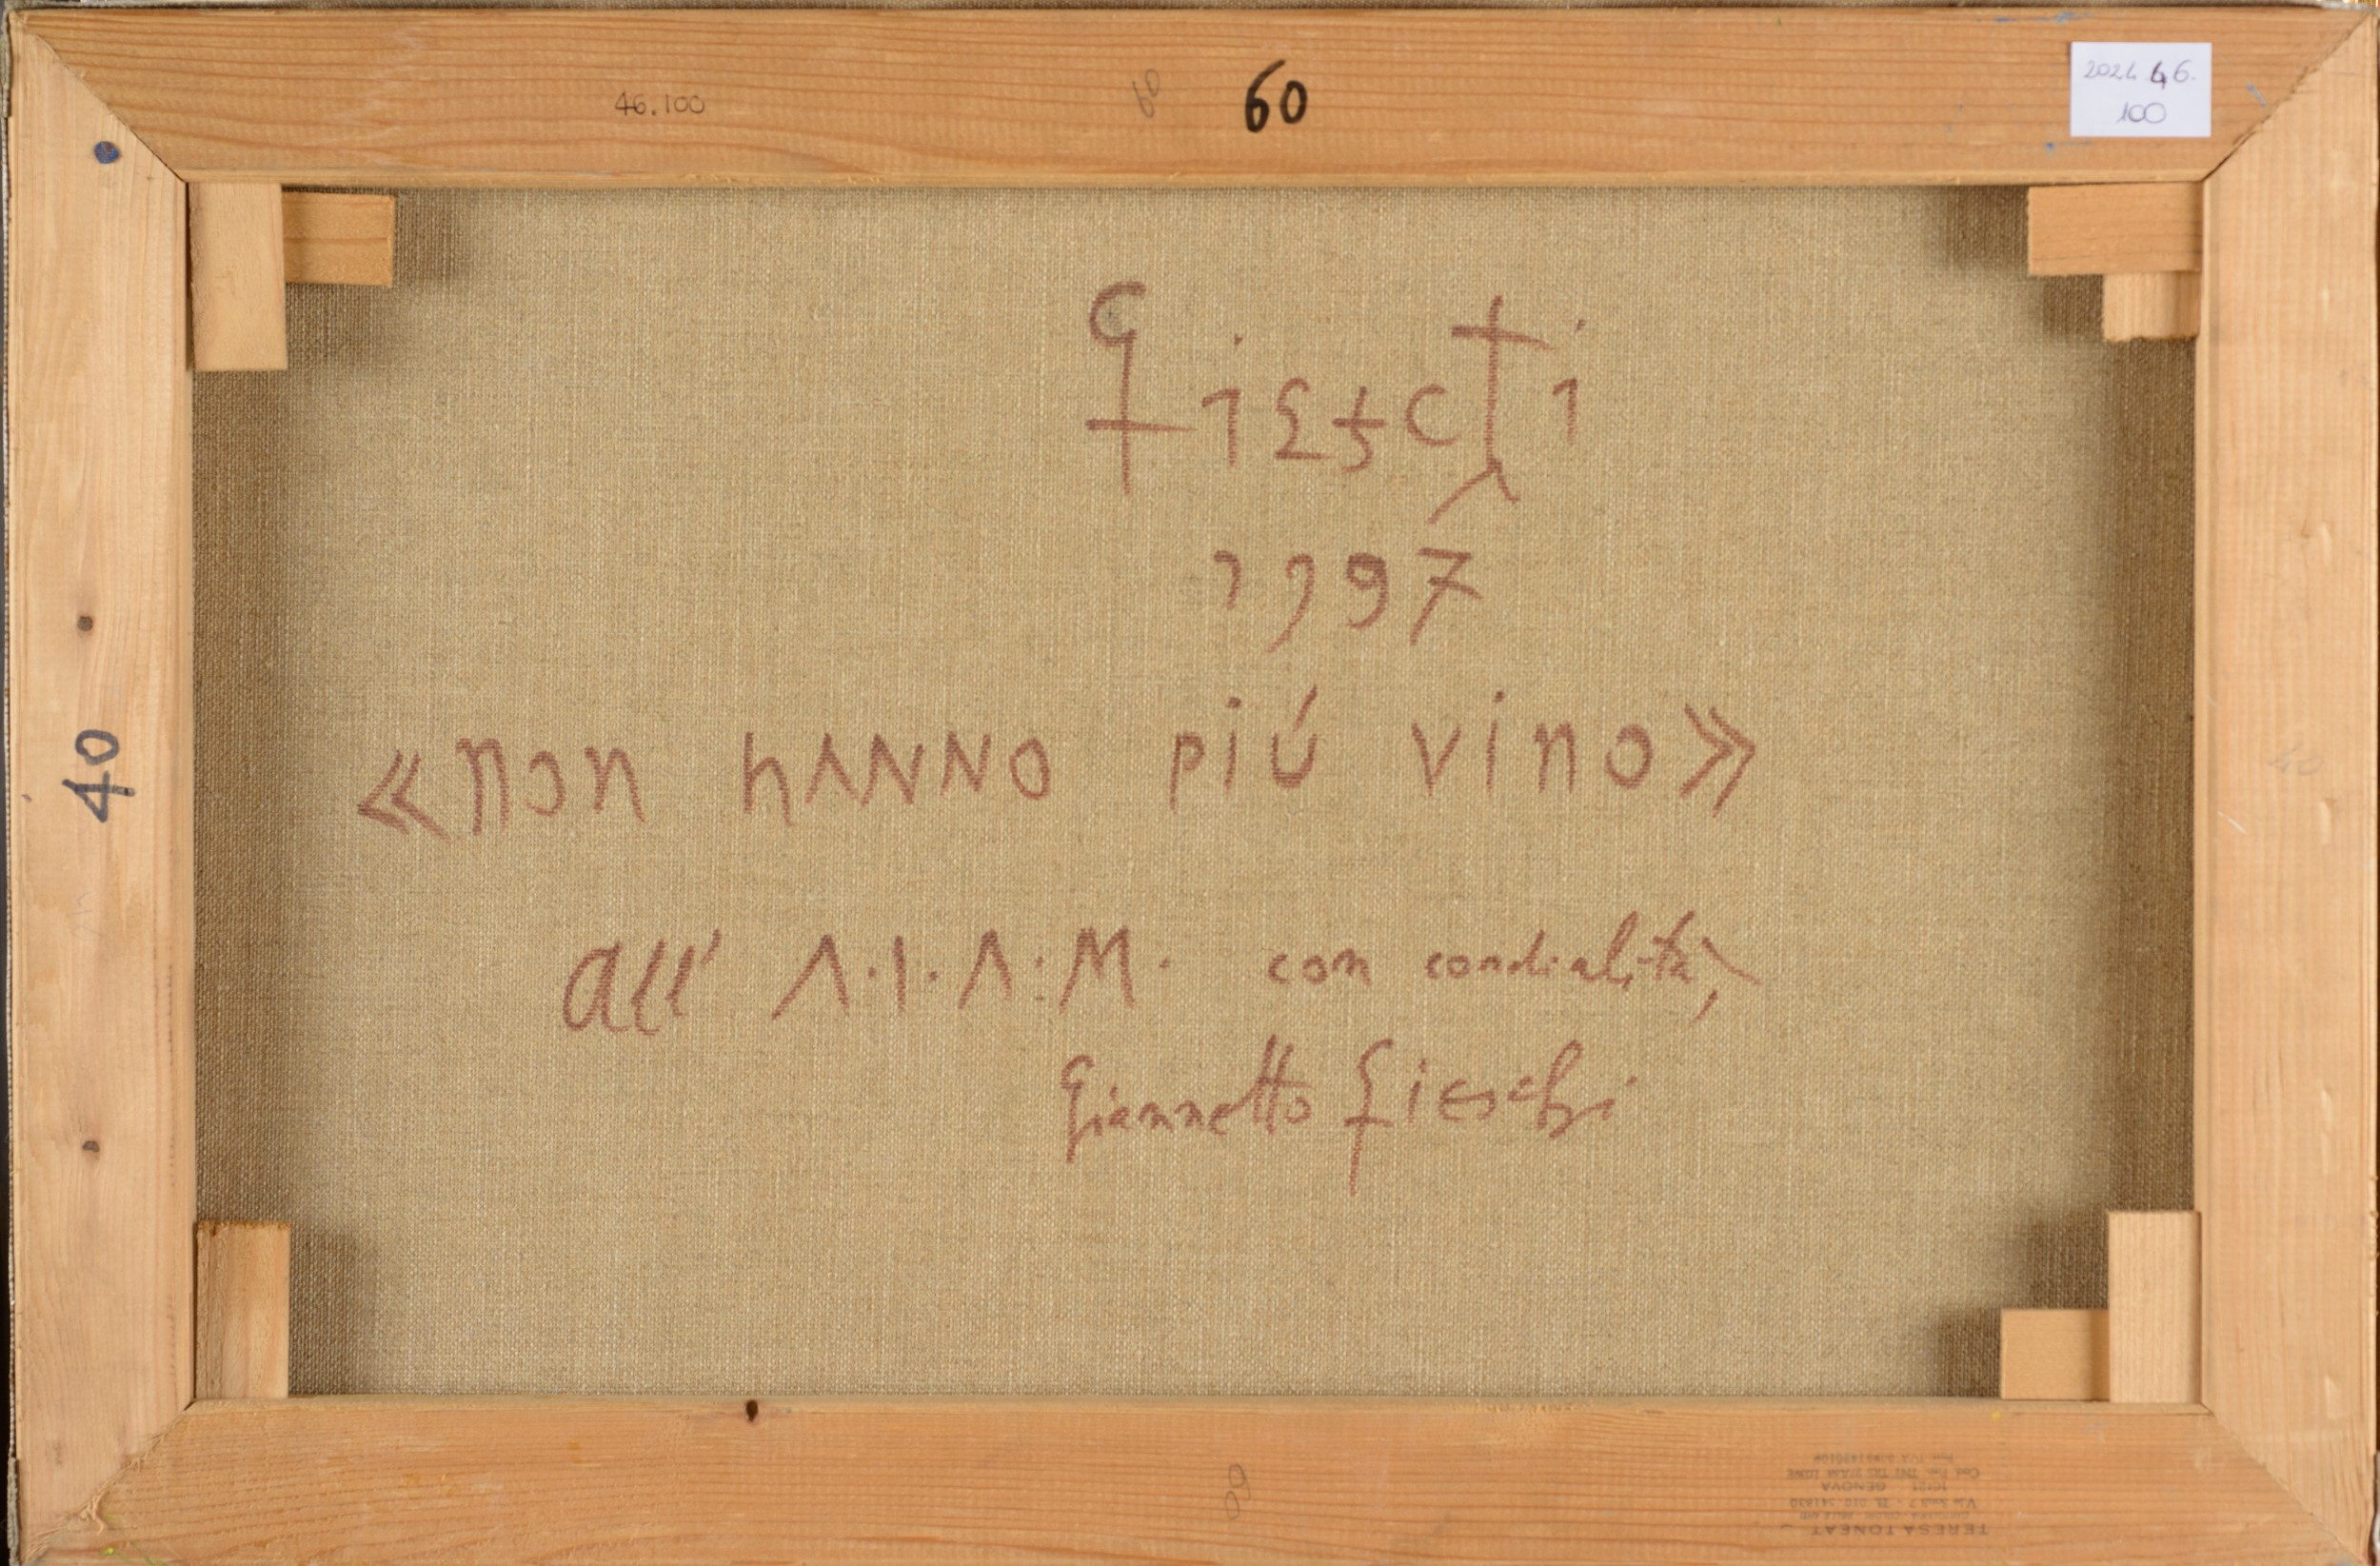 46.100
60
60
2024.46.
100
40
Fieschi
1997
«non hANNO più vino»
all' A.I.A.M. con cordialità,
Giannetto Fieschi
60
TERESA TONEAT
GENOVA